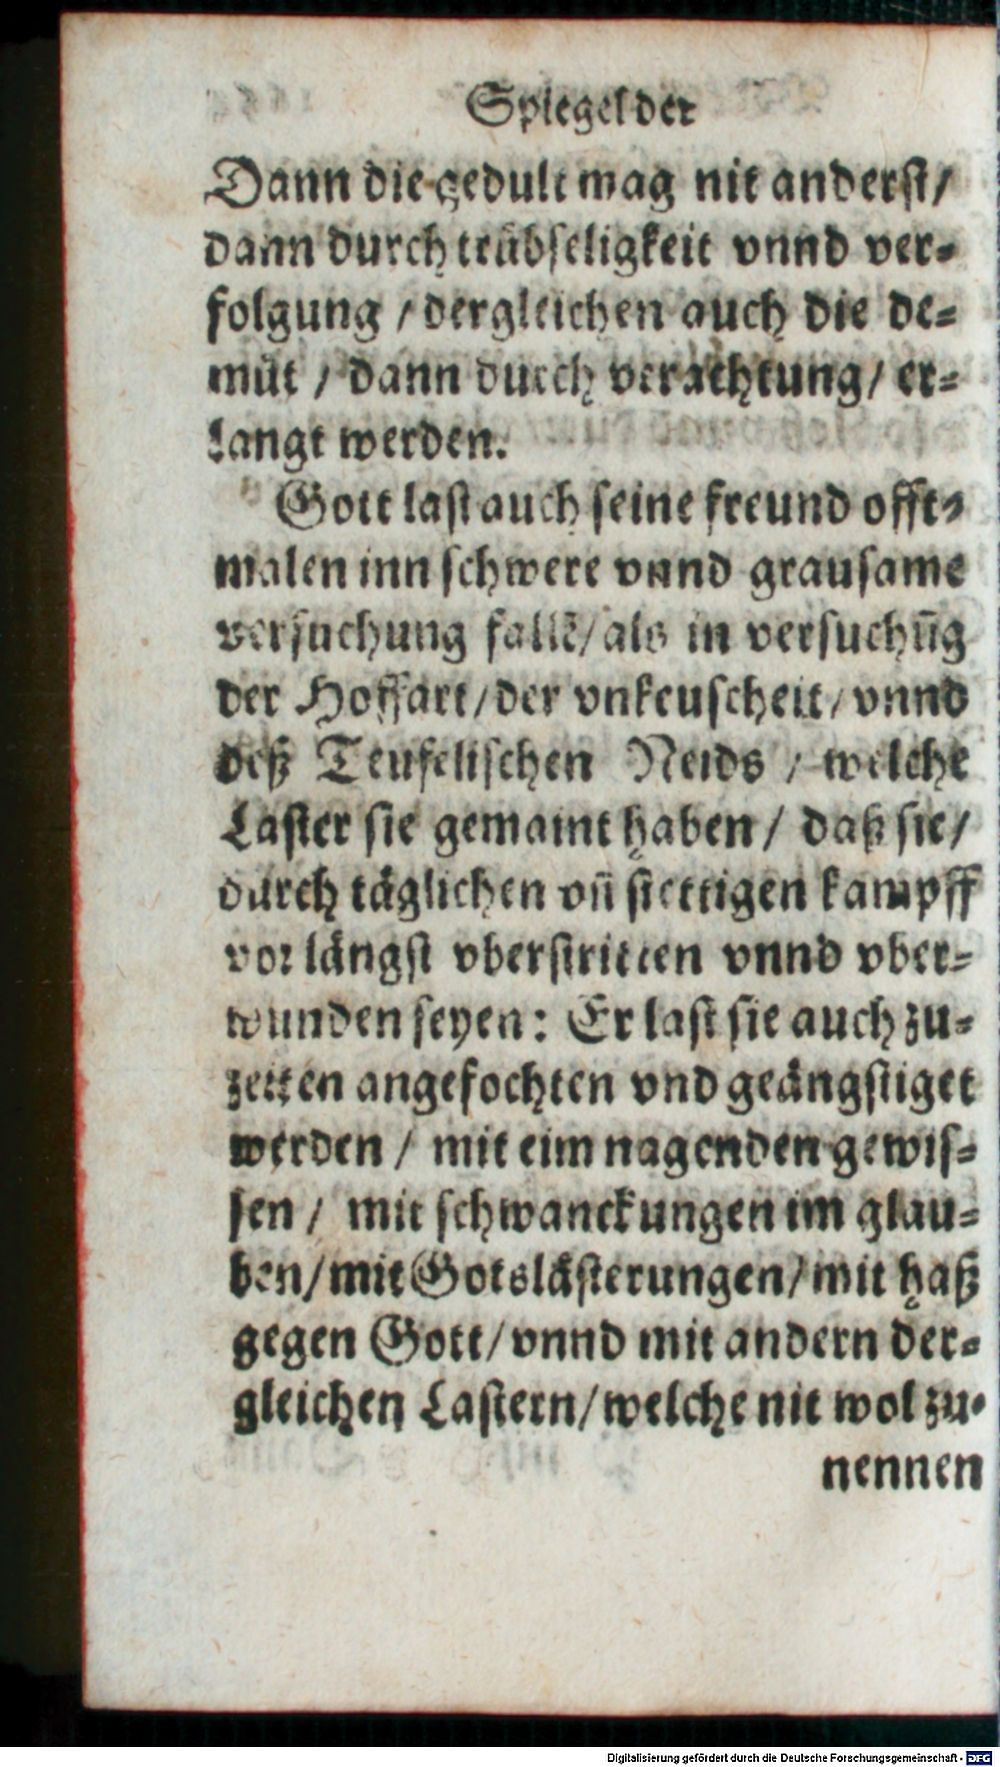 Spiegel der
Dann die gedult mag nit anderst/
dann durch trübseligkeit vnnd ver-
folgung / dergleichen auch die de-
müt / dann durch verachtung / er-
langt werden.
Gott last auch seine freund offt-
malen inn schwere vnnd grausame
versuchung fallẽ/als in versuchũg
der Hoffart/der vnkeuscheit/vnnd
deß Teufelischen Neids / welche
Laster sie gemaint haben / daß sie/
durch täglichen vñ stettigen kampff
vor längst vberstritten vnnd vber-
wunden seyen: Er last sie auch zu-
zeiten angefochten vnd geängstiget
werden / mit eim nagenden gewis-
sen / mit schwanckungen im glau-
ben/mit Gotslästerungen/mit haß
gegen Gott/vnnd mit andern der-
gleichen Lastern/welche nit wol zu-
nennen
Digitalisierung gefördert durch die Deutsche Forschungsgemeinschaft - DFG